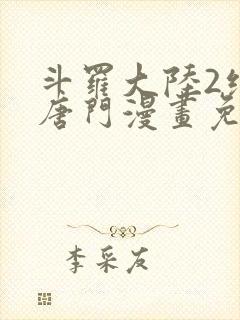 斗羅大陸2
唐門漫畫免
李采友